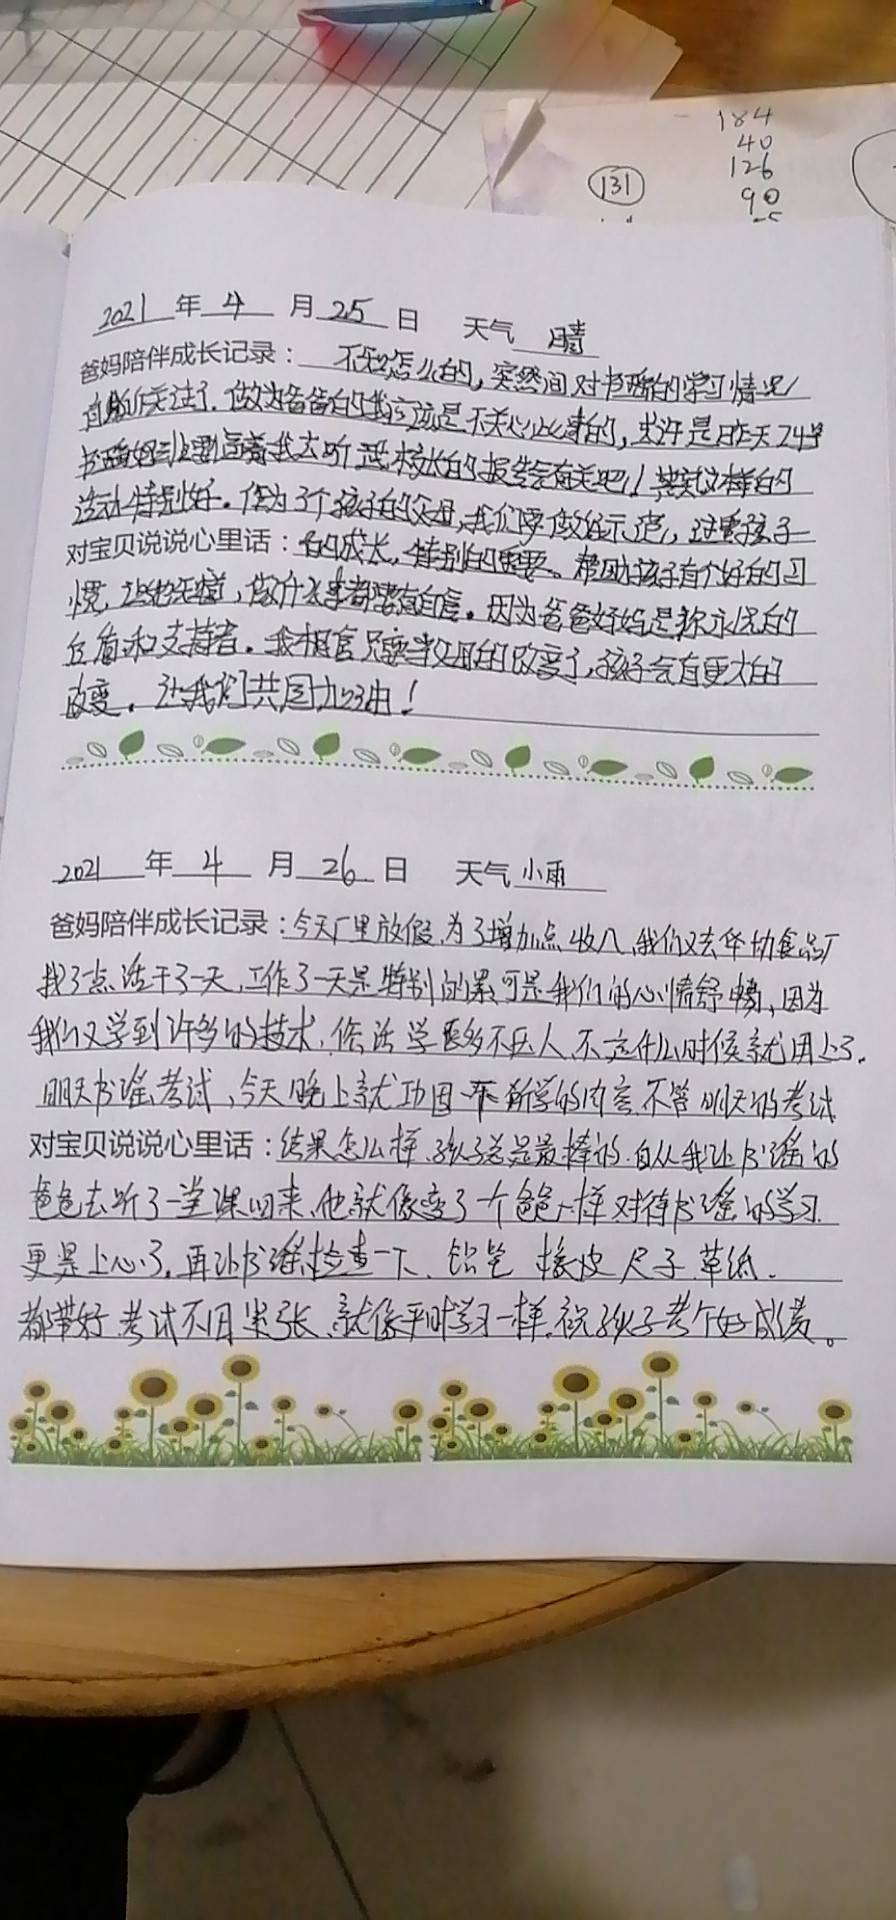 184
40
126
131
90
2021 年 4 月 25 日 天气 晴
爸妈陪伴成长记录： 不知怎么的，突然间对书瑶的学习情况
有所关注了．做为爸爸的我应该是不关心此事的，或许是昨天24号
书瑶妈妈要逼着我去听 校长的报告会有关吧！其实这样的
活动特别好。作为3个孩子的父母，我们要做好示范，这对孩子
对宝贝说说心里话：的成长，特别的重要。帮助孩子有个好的习
惯，让她知道，做什么事都要有自信。因为爸爸妈妈是你永远的
后盾和支持者。我相信只要当父母的改变了，孩子会有更大的
改变。让我们共同加油！
2021 年 4 月 26 日 天气 小雨
爸妈陪伴成长记录：今天厂里放假，为了增加点收入，我们又去华协食品厂
找了点活干了一天，工作了一天是特别的累可是我们的心情舒畅，因为
我们又学到许多的技术，俗话学多不压人，不定什么时候就用上了．
明天书瑶考试，今天晚上就巩固一下所学的内容，不管明天的考试
对宝贝说说心里话：结果怎么样，孩子总是最棒的．自从我让书瑶的
爸爸去听了一堂课回来，他就像变了一个爸爸一样对待书瑶的学习
更是上心了．再让书瑶检查一下、铅笔 橡皮 尺子 草纸．
都带好 考试不用紧张、就像平时学习一样，祝孩子考个好成绩。